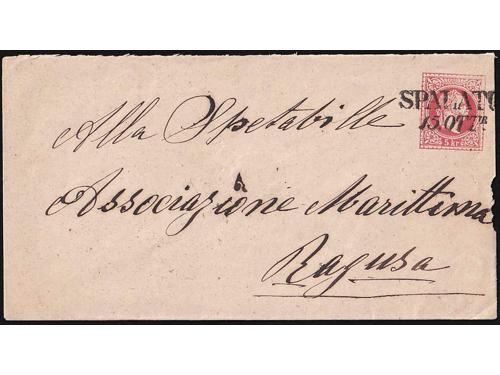 SPALATO
15 OTTR
5 kr
Alla Spetabille
Associazione Marittima
Ragusa